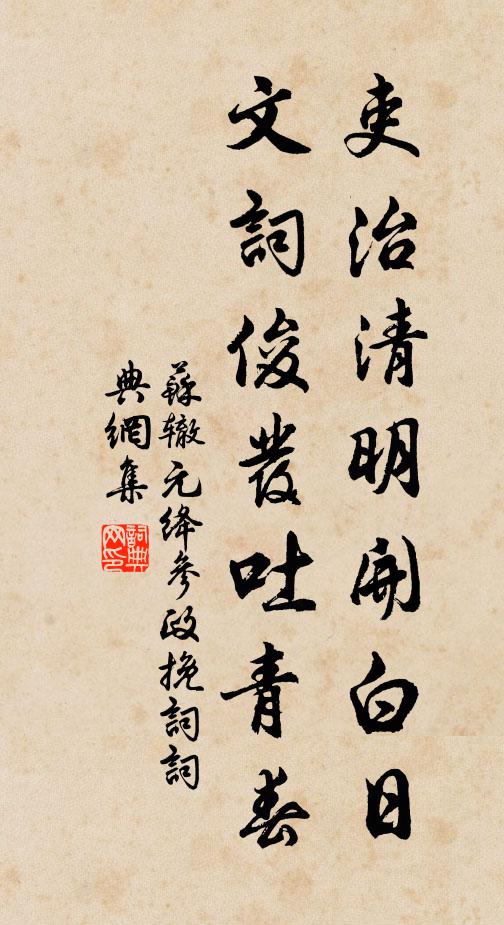 吏治清明開白日
文詞俊發吐青春
蘇轍元絳參政挽詞詞
典網集
詞典網印